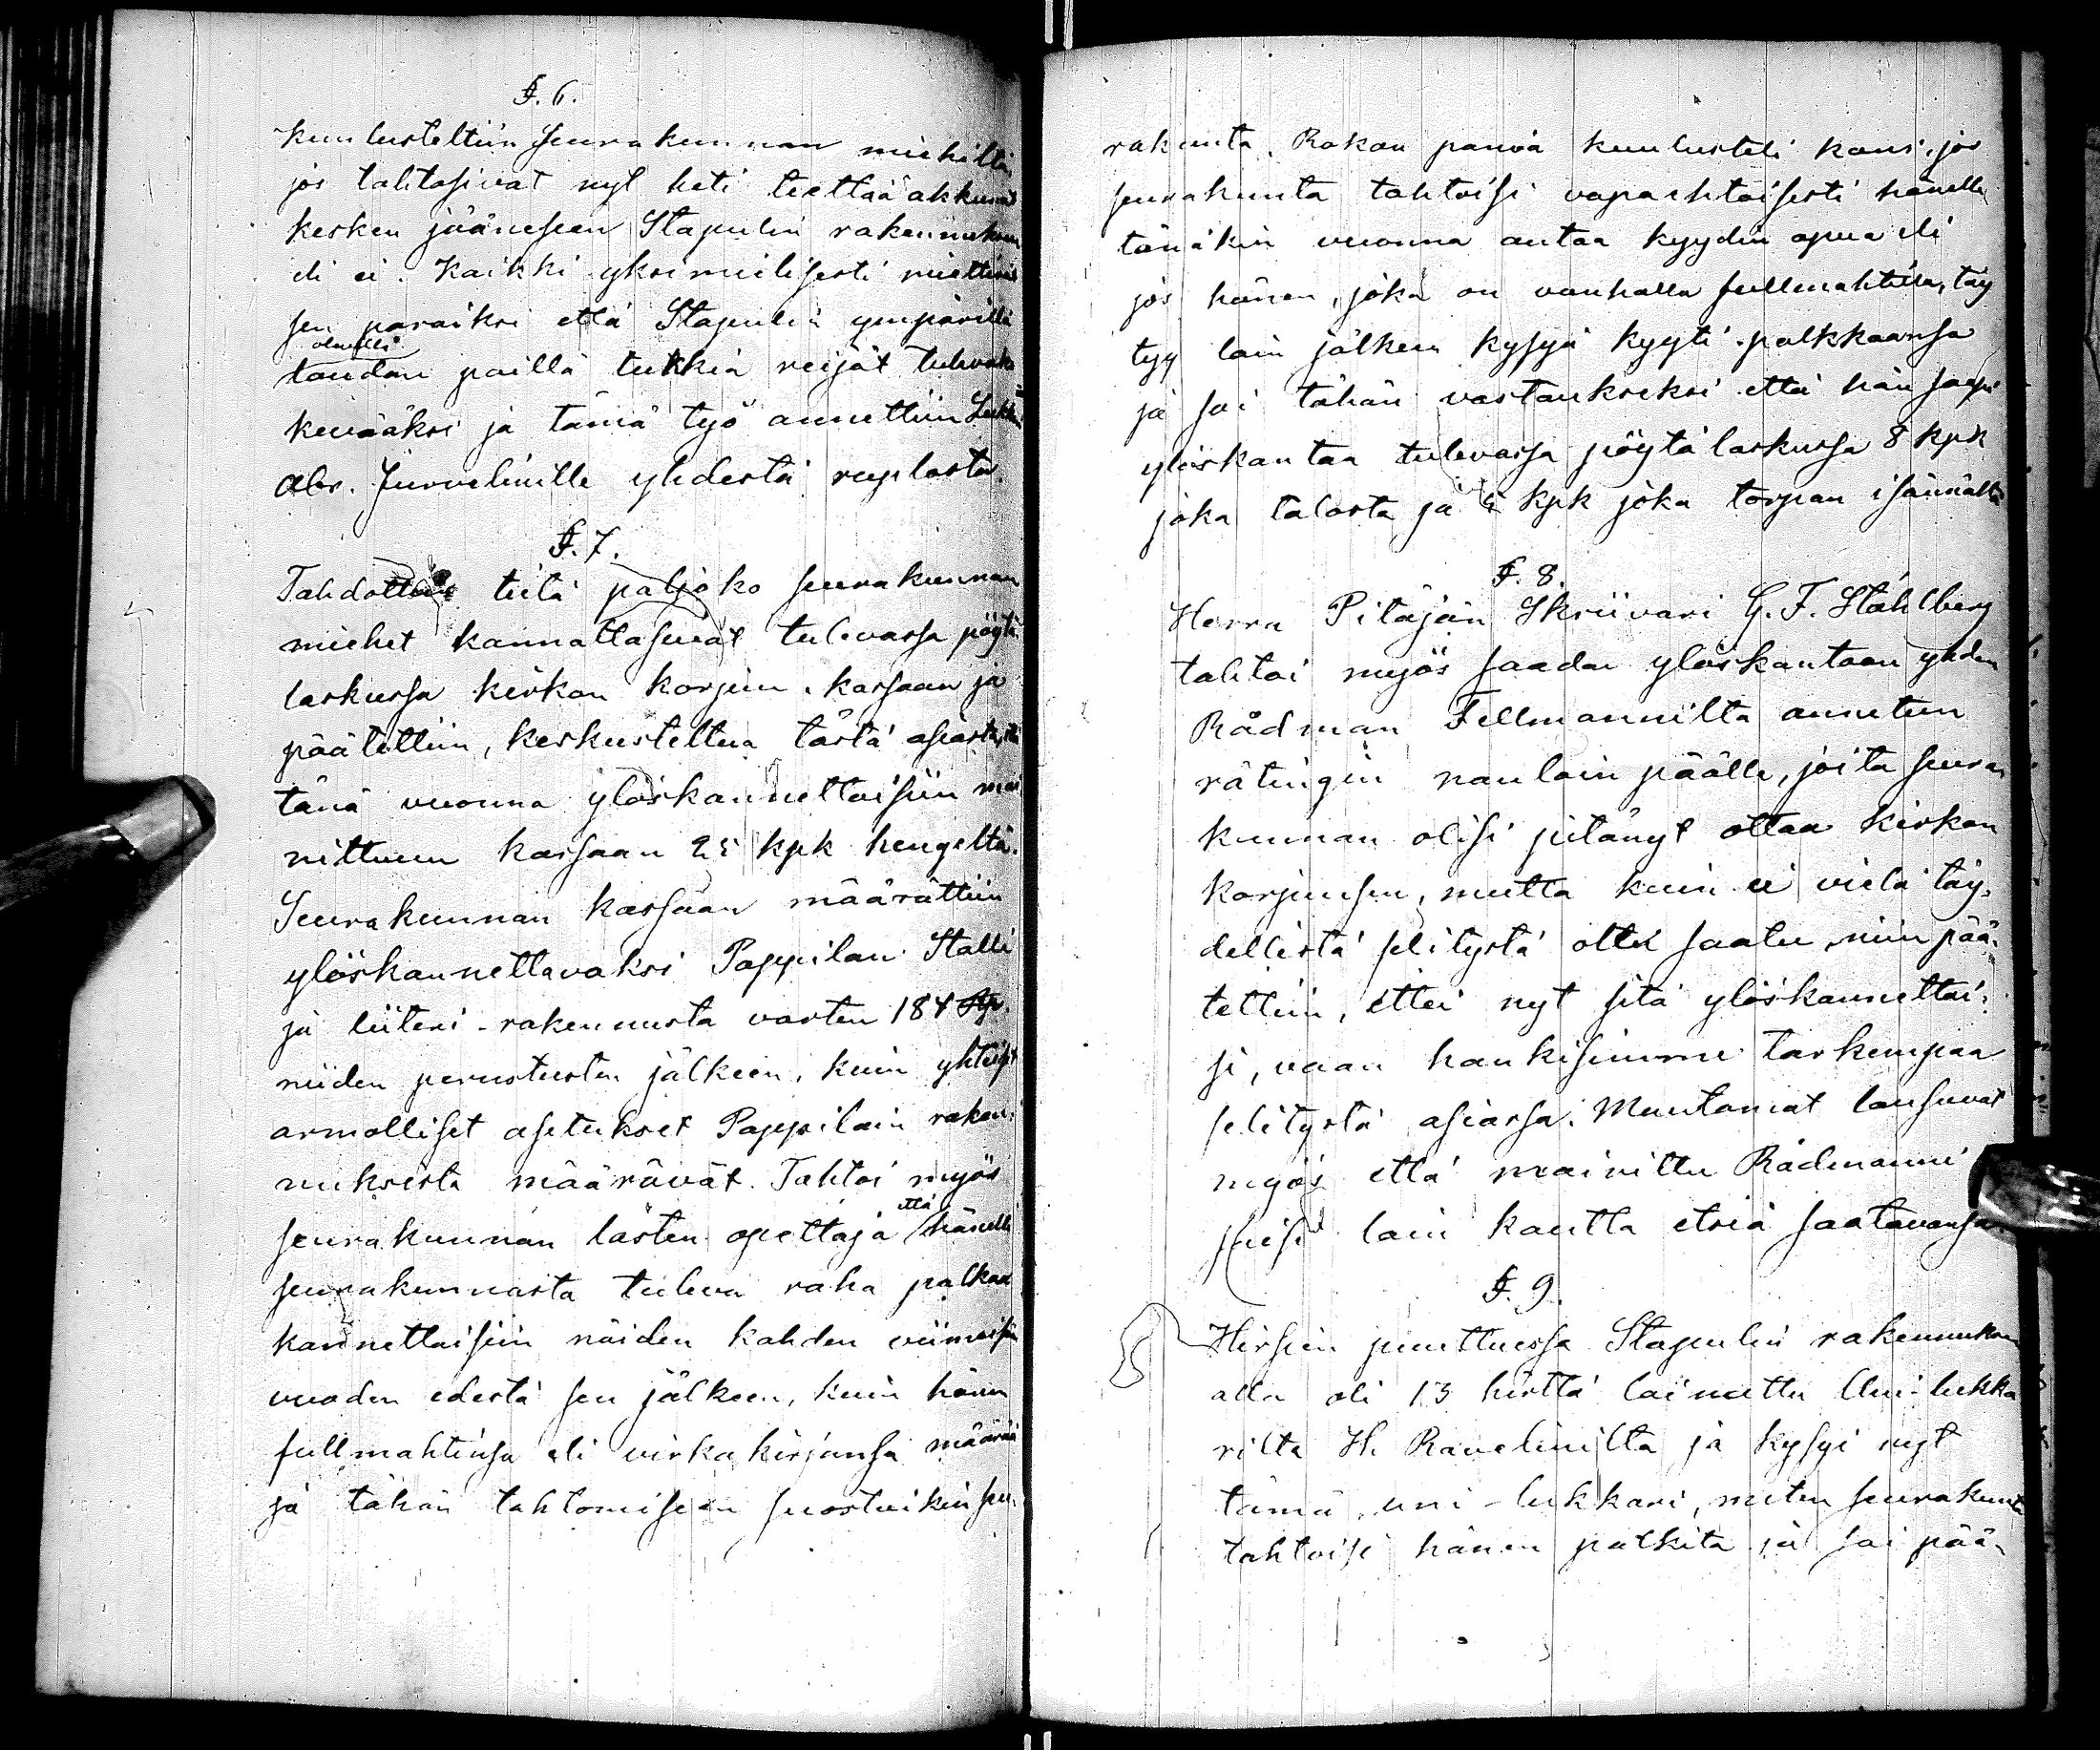 §. 6.
Kuulusteltiin seurakunnan miehiltä,
jos tahtosivat nyt heti teettää akkunat
kesken jääneseen Stapulin rakennukseen
eli ei. Kaikki yksimielisesti miettivät
sen paraiksi että Stapulin ympärillä
olevilla
laudan päillä tukkia reijät tulevaksi
kevääksi ja tämä työ annettiin
Abr. Jurvelinille yhdestä ruplasta.
§. 7.
Tahdottiin tietä paljoko seurakunnan
miehet kannattasivat tulevassa pöytä
laskussa kirkon korjuu-kassaan ja
päätettiin, keskusteltua tästä asiasta, että
tänä vuonna ylöskannettaisiin mai
nittuun kassaan 25 kpk hengeltä.
Seurakunnan kassaan määrättiin
ylöskannettavaksi Pappilan Stalli
ja liiteri-rakennusta varten 184 Rp.
niiden perustusten jälkeen, kuin yhteiset
armolliset asetukset Pappilain raken-
nuksista määräävät. Tahtoi myös
seurakunnan lasten opettaja että hänelle
seurakunnasta tuleva raha palkka
kannettaisiin näiden kahden viimeisen
vuoden edestä sen jälkeen, kuin hänen
fullmahtinsa eli virkakirjansa määrää
ja tähän tahtomiseen suostuikin seu-
rakunta. Rokon pania kuulusteli kans, jos
seurakunta tahtoisi vapaehtoisesti hänelle
tänäkin vuonna antaa kyydin apua eli
jos hänen, joka on vanhalla fullmahtilla, täy
tyy lain jälkeen kysyä kyyti-palkkaansa
ja sai tähän vastaukseksi että hän saapi
ylöskantaa tulevassa pöytälaskussa 8 kpk
joka talosta ja 4 kpk joka torpan isännältä
§. 8.
Herra Pitäjän Skriivari G. F. Ståhlberg
tahtoi myös saada ylöskantaan yhden
Rådman Fellmannilta annetun
rätingin naulain päälle, joita seura-
kunnan olisi pitänyt ottaa kirkon
korjuusen, mutta kuin ei vielä täy-
dellistä selitystä ollut saatu, niin pää-
tettiin, ettei nyt sitä ylöskannettai-
si, vaan hankisimme tarkempaa
selitystä asiassa. Muutamat lausuvat
myös että mainittu Rådmanni
saisi lain kautta etsiä saatavansa
§. 9.
Hirsien puuttuessa Stapulin rakennuksen
alla oli 13 hirttä lainattu Uni-lukka
rilta H. Ravelinilta ja kysyi nyt
tämä uni-lukkari, miten seurakunta
tahtoisi hänen palkita ja sai pää-